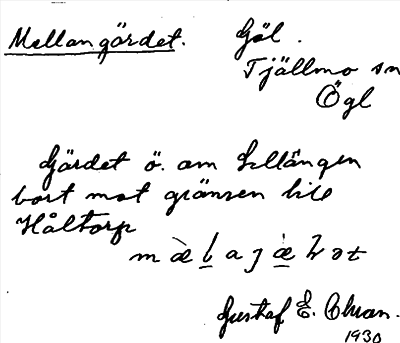 Mellangärdet. Göl.
Tjällmo sn
Ögl
Gärdet ö. om Lillängen
bort mot gränsen till
Håltorp
Gustaf E. Ohran.
1930